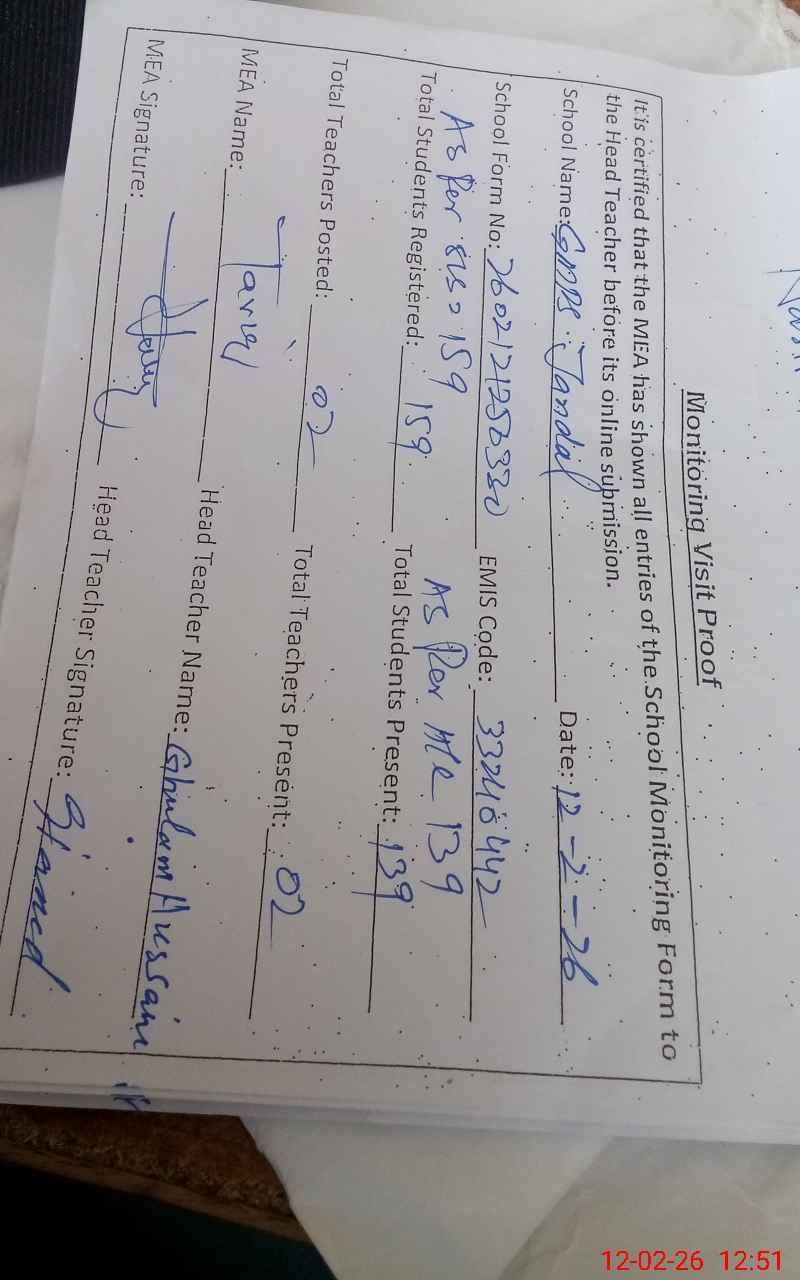 Monitoring Visit Proof
It is certified that the MEA has shown all entries of the School Monitoring Form to
the Head Teacher before its online submission.
School Name: GMPS Jandal Date: 12-2-26
School Form No: 2602121250330 EMIS Code: 33240442
As Per SIS = 159 As Per HR 139
Total Students Registered: 159 Total Students Present: 139
Total Teachers Posted: 02 Total Teachers Present: 02
MEA Name: Tariq Head Teacher Name: Ghulam Hussain
MEA Signature: Head Teacher Signature:
12-02-26 12:51